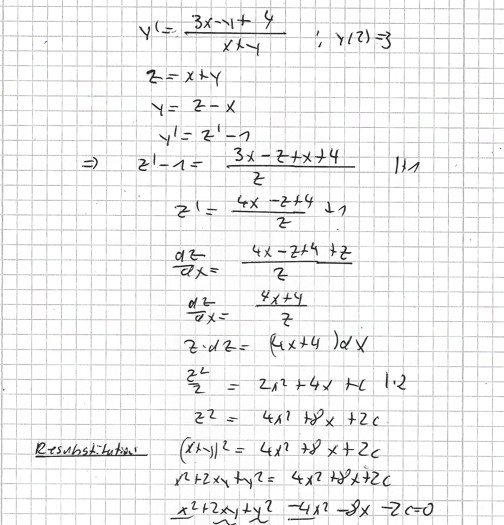 y' = (3x-y+4)/(x+y) ; y(2)=3
z = x+y
y = z - x
y' = z' - 1
=> z' - 1 = (3x - z + x + 4)/z |+1
z' = (4x - z + 4)/z + 1
dz/dx = (4x - z + 4 + z)/z
dz/dx = (4x+4)/z
z · dz = (4x+4)dx
z²/2 = 2x² + 4x + c |·2
z² = 4x² + 8x + 2c
Resubstitution: (x+y)² = 4x² + 8x + 2c
x² + 2xy + y² = 4x² + 8x + 2c
x² + 2xy + y² - 4x² - 8x - 2c = 0